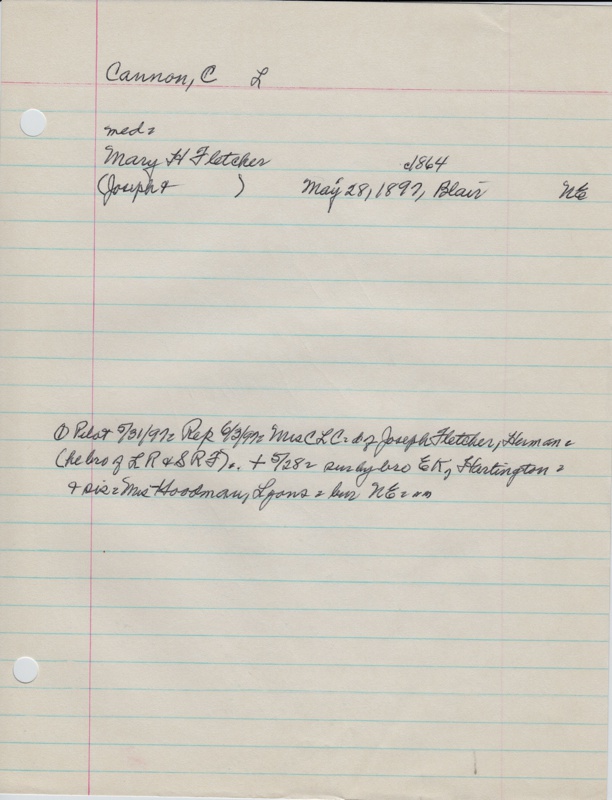 Cannon, C L
med=
Mary H Fletcher c1864
(Joseph + ) May 28, 1897, Blair NE
① Pilot 5/31/97= Rep 6/3/97= Mrs C L C= d of Joseph Fletcher, Herman=
(he bro of L R & S R F)=. + 5/28= sur by bro E K, Hartington=
+ sis= Mrs Goodman, Lyons= bur NE=